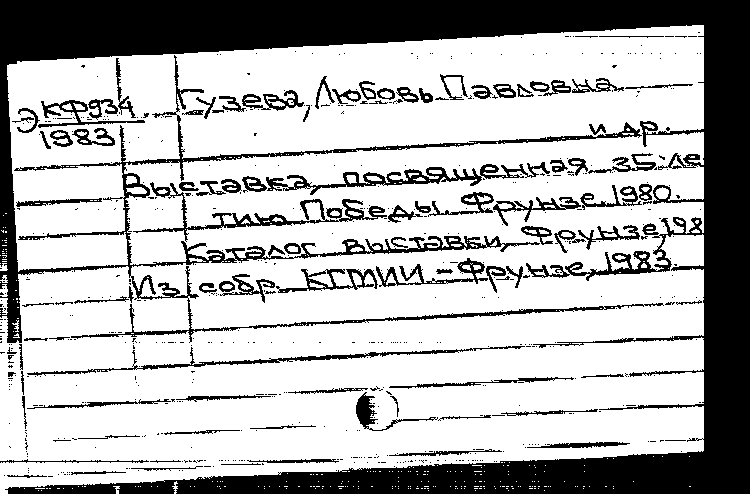 Э КФ934 Гузева, Любовь Павловна
1983
и др.
Выставка, посвященная 35-ле
тию Победы. Фрунзе. 1980.
Каталог выставки, Фрунзе, 198
Из собр. КГМИИ.-Фрунзе, 1983.